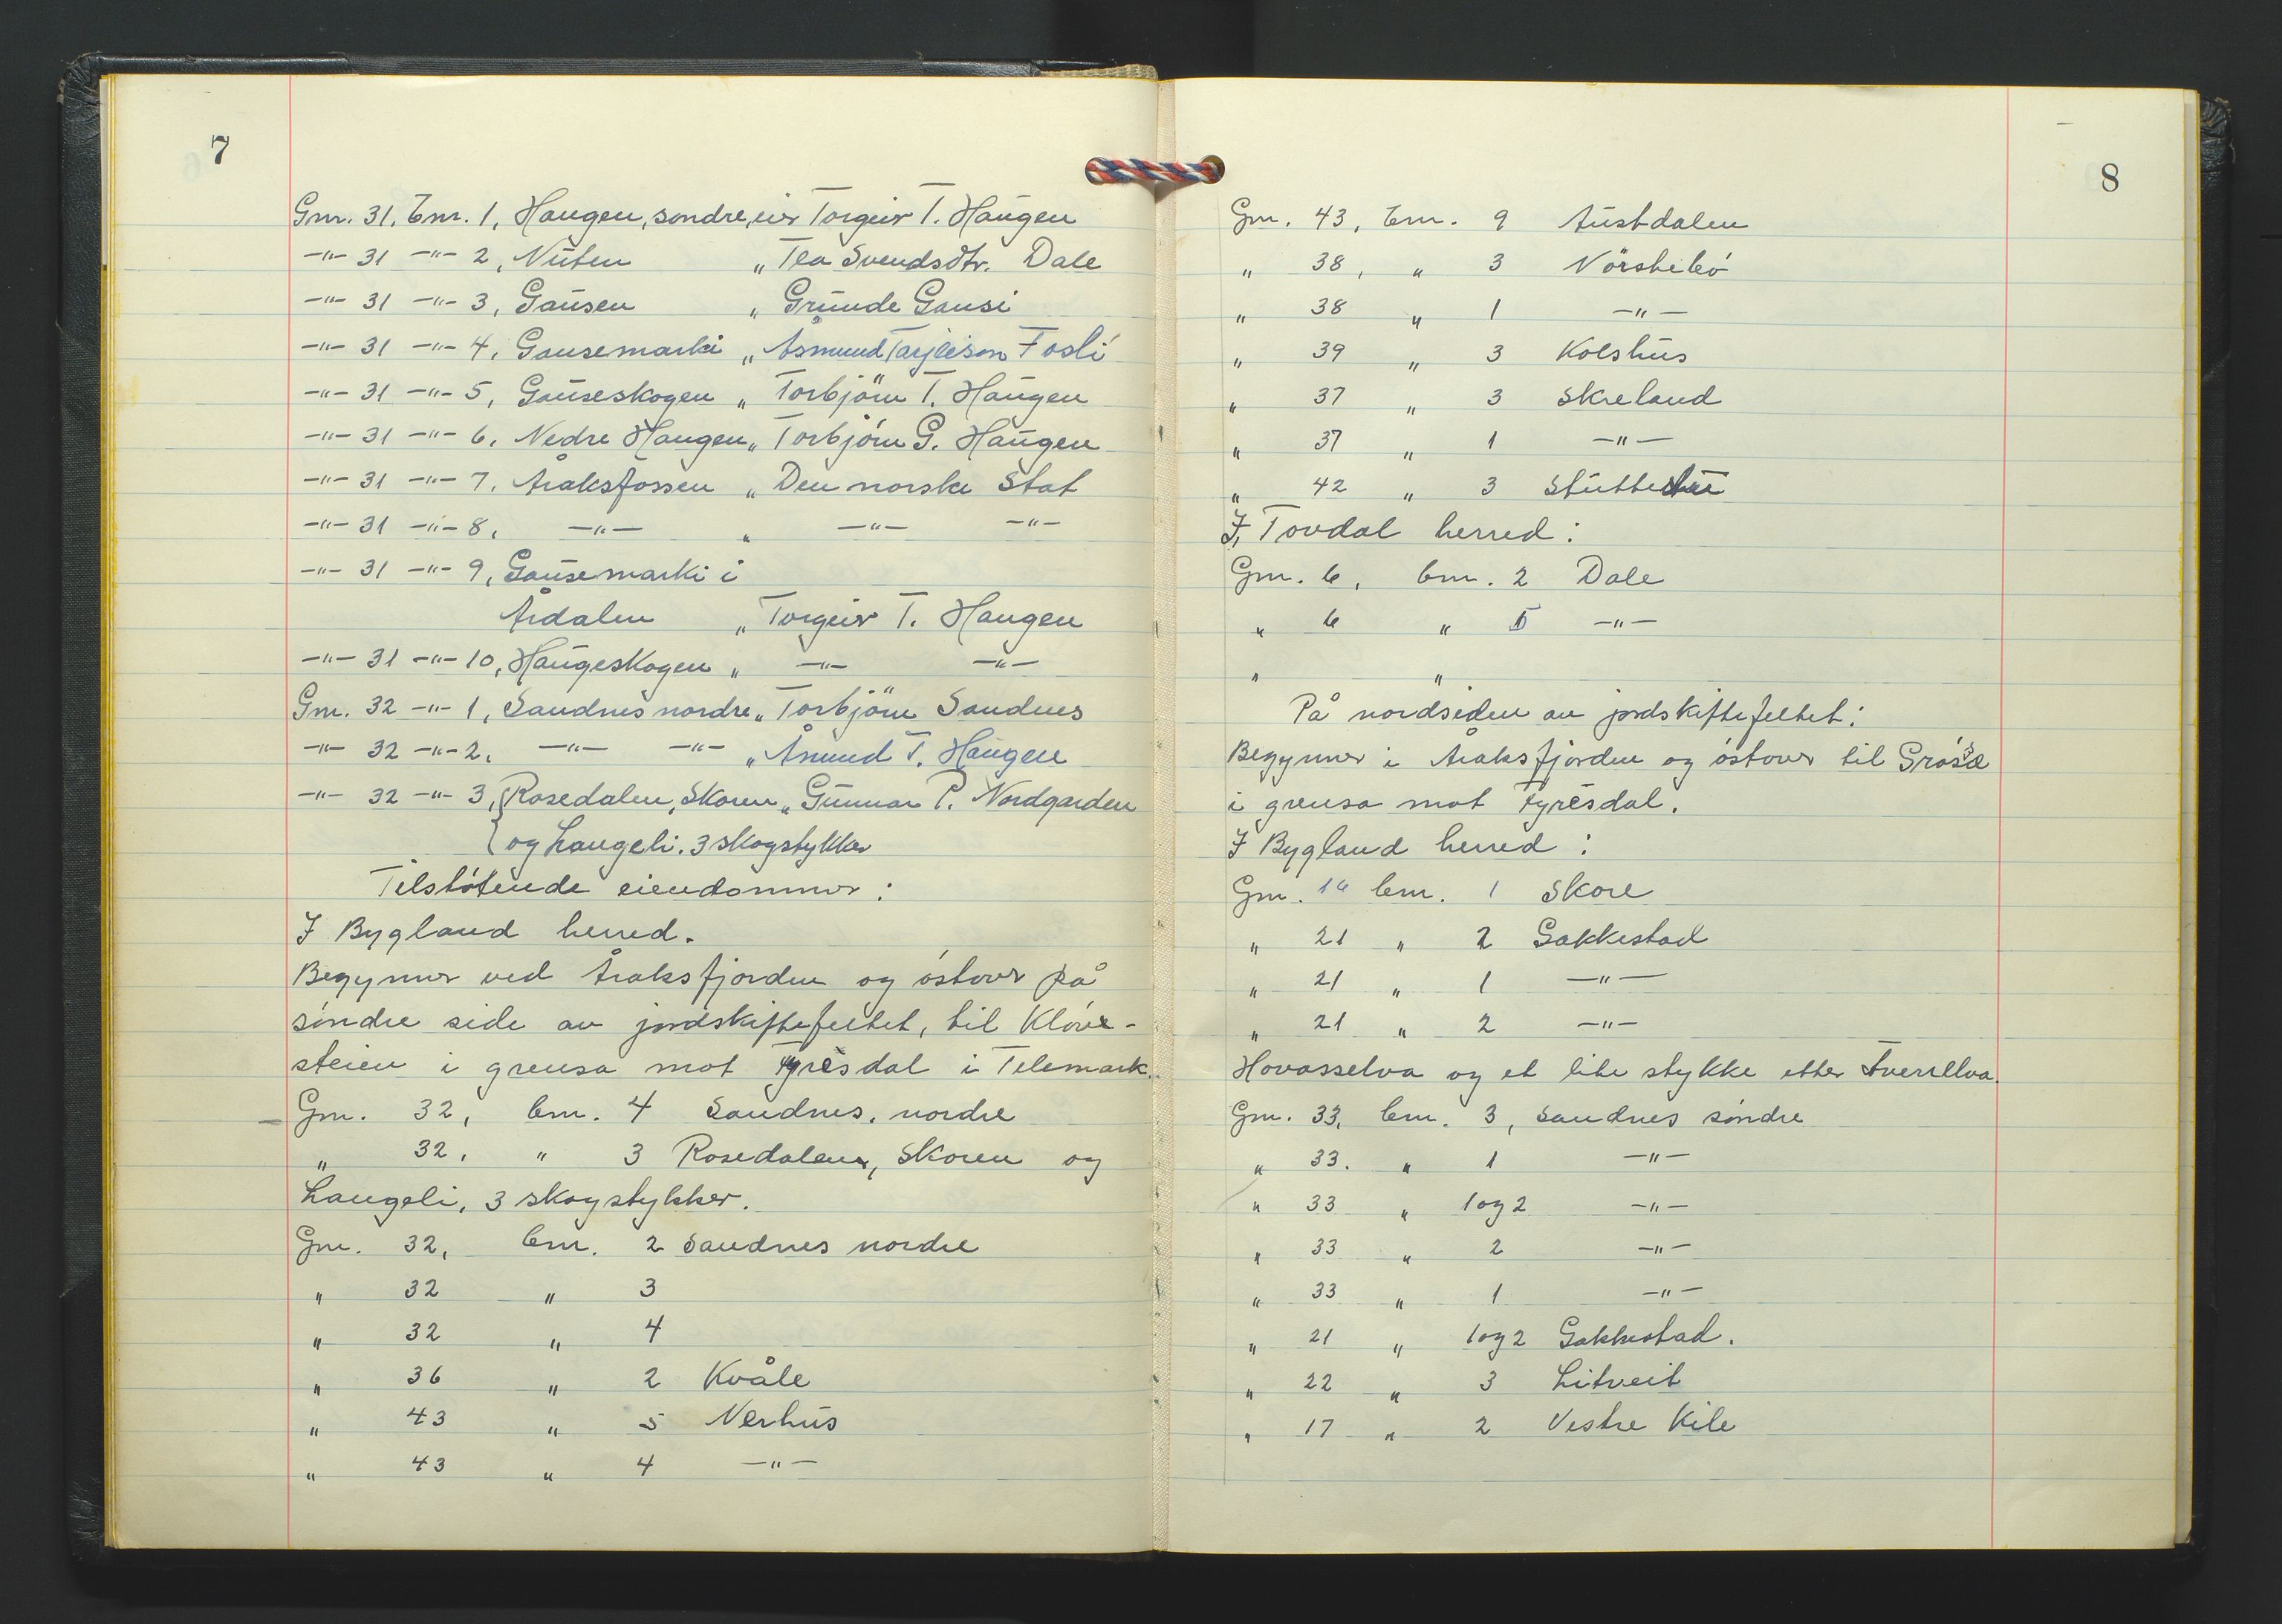 7
Gnr. 31, bnr. 1, Haugen, søndre, eier Torgeir T. Haugen
-"- 31 -"- 2, Nuten " Tea Svendsdtr. Dale
-"- 31 -"- 3, Gausen " Grunde Gausi
-"- 31 -"- 4, Gausemarki " Åsmund Tarjeison Fosli
-"- 31 -"- 5, Gauseskogen " Torbjörn T. Haugen
-"- 31 -"- 6, Nedre Haugen " Torbjörn G. Haugen
-"- 31 -"- 7, Åraksfossen " Den norske Stat
-"- 31 -"- 8, -"- " -"- -"-
-"- 31 -"- 9, Gausemarki i
Årdalen " Torgeir T. Haugen
-"- 31 -"- 10, Haugeskogen " -"- -"-
Gnr. 32 -"- 1, Sandnes nordre " Torbjörn Sandnes
-"- 32 -"- 2, -"- -"- " Åmund T. Haugen
-"- 32 -"- 3, {Rosedalen, Skoren " Gunnar P. Nordgarden
{og Langeli. 3 skogstykker
Tilstøtende eiendommer:
I Bygland herred.
Begynner ved Åraksfjorden og østover på
søndre side av jordskiftefeltet, til Kløve-
steien i grensa mot Fyresdal i Telemark.
Gnr. 32, bnr. 4 Sandnes, nordre
" 32, " 3 Rosedalen, Skoren og
Langeli, 3 skogstykker.
Gnr. 32, bnr. 2 Sandnes nordre
" 32 " 3
" 32 " 4
" 36 " 2 Kvåle
" 43 " 5 Nerhus
" 43 " 4 -"-
8
Gnr. 43, bnr. 9 Austdalen
" 38, " 3 Nørstebø
" 38 " 1 -"-
" 39 " 3 Kolshus
" 37 " 3 Skreland
" 37 " 1 -"-
" 42 " 3
I, Tovdal herred:
Gnr. 6, bnr. 2 Dale
" 6 " 5 -"-
" "
På nordsiden av jordskiftefeltet:
Begynner i Åraksfjorden og østover til Grøsæ
i grensa mot Fyresdal.
I Bygland herred:
Gnr. 16 bnr. 1 Skore
" 21 " 2 Gakkestad
" 21 " 1 -"-
" 21 " 2 -"-
Hovasselva og et lite stykke etter Tverrelva.
Gnr. 33, bnr. 3, Sandnes søndre
" 33. " 1 -"-
" 33 " 1 og 2 -"-
" 33 " 2 -"-
" 33 " 1 -"-
" 21 " 1 og 2 Gakkestad.
" 22 " 3 Litveit
" 17 " 2 Vestre Kile